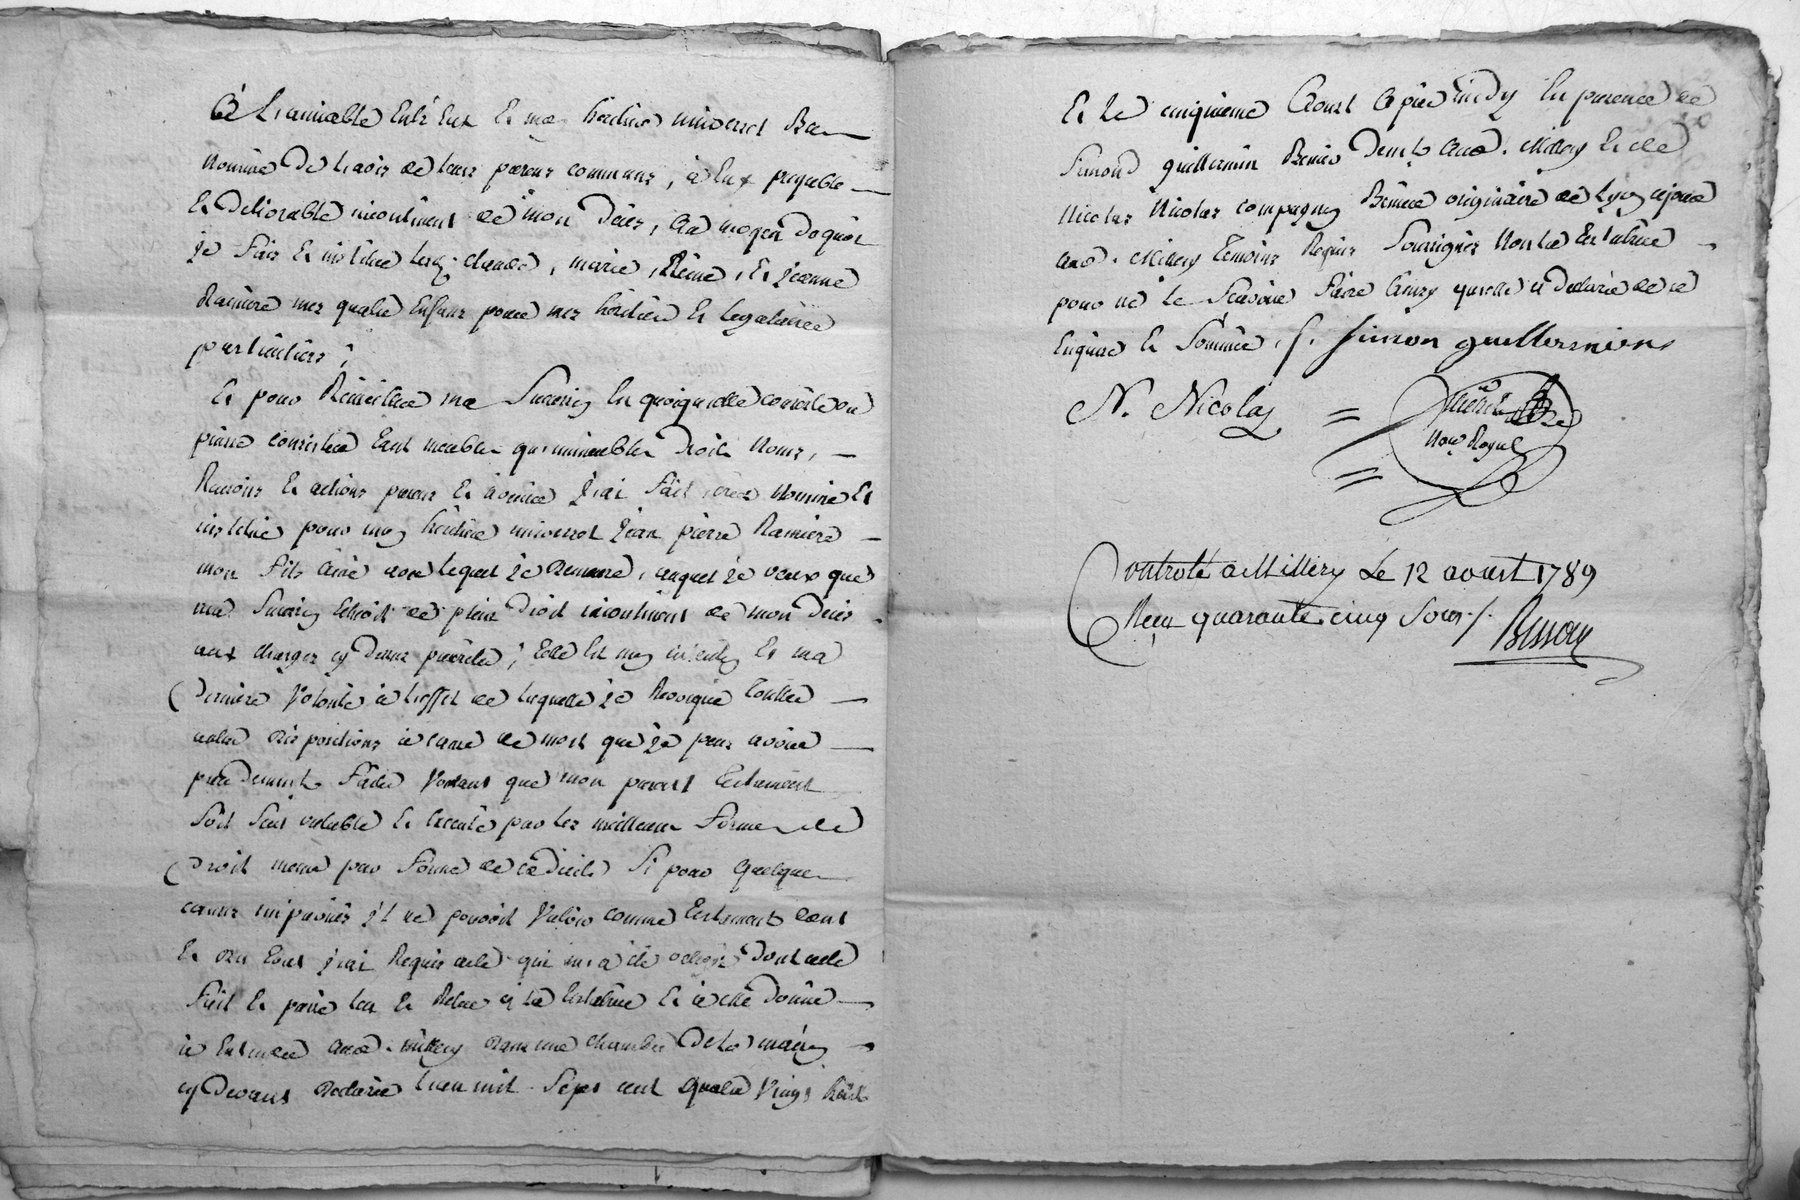 à l'amiable entr'eux et mon héritier universel
nommé de l'avis de leurs parens communs, à eux payable
et délivrable incontinent de mon décès, au moyen de quoi
je fais et institue claude, marie, Reine, et jeanne
Ramiere mes quatre enfans pour mes héritiers et legataires
particuliers;
Et pour ma succession en quoiquelle consiste ou
puisse consister tant meubles qu'immeubles droits noms,
Raisons et actions present et à venir j'ai fait, créé nommé et
institué pour mon héritier universel jean pierre Ramiere
mon fils ainé avec lequel je demeure, auquel je veux que
ma succession echoit de plein droit incontinent de mon décès
aux charges cy devant ; telle est mon intention et ma
derniere volonté à l'effet de laquelle je Revoque toutes
autres dispositions à cause de mort que je peus avoir
precedement faites voulant que mon present testament
soit valable et executé par les meilleures formes de
droit meme par forme de codicile si pour quelque
cause imprevue il ne pouvoit valoir comme testament dont
et du tout j'ai Requis acte qui m'a été octroyé dont acte
fait et lu et Relue à la testatrice et à elle donné
à entendre aud. millery dans une chambre de la maison
cy devant declarée l'an mil sept cent quatre vingt neuf
et le cinquieme aoust après midy en presence de
Simond guillermin dem.t aud. Millery et de
Nicolas Nicolas compagnon originaire de Lyon
aud. Millery temoins Requis soussignés non la testatrice
pour ne le scavoir faire ainsy qu'elle a declaré de ce
enquise et sommée. s. simon guillermien
N. Nicolas
Not.re Royal
Controllé a Millery Le 12 aoust 1789
Reçu quarante cinq sous
Besson